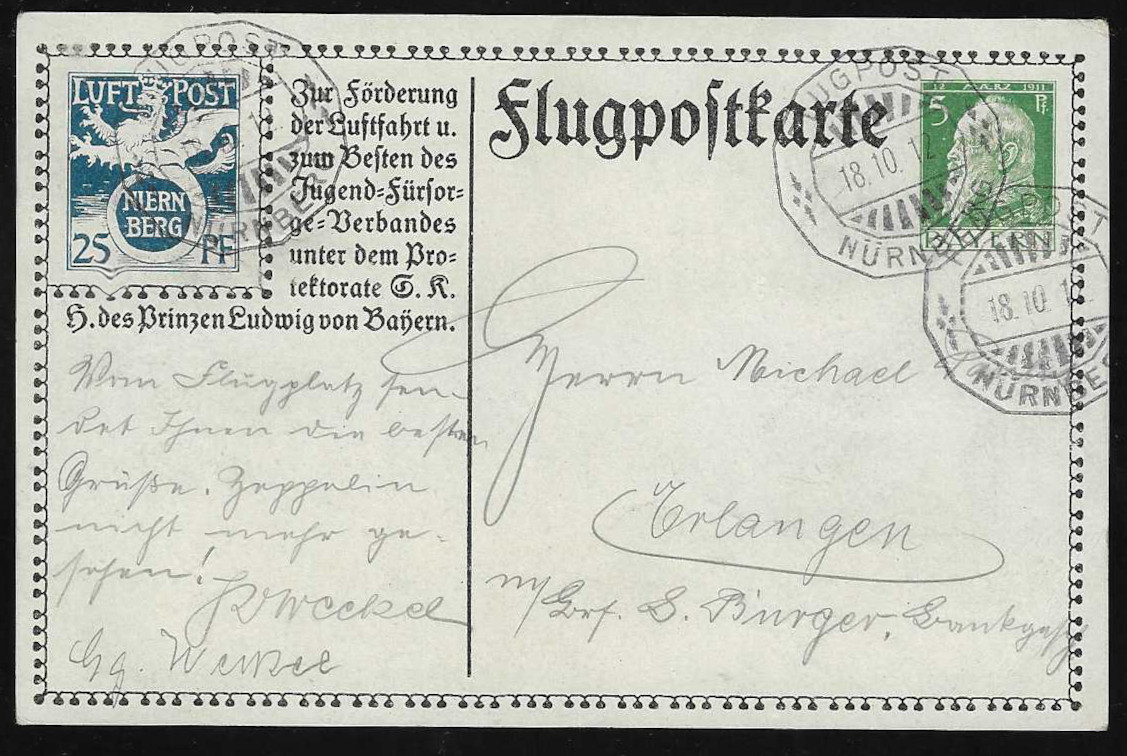 LUFT POST
NÜRN
BERG
25 PF
Zur Förderung
der Luftfahrt u.
zum Besten des
Jugend=Fürsor=
ge=Verbandes
unter dem Pro=
tektorate S. K.
H. des Prinzen Ludwig von Bayern.
Flugpostkarte
12 MÄRZ 1911
5 Pf.
BAYERN
FLUGPOST
NÜRNBERG
FLUGPOST
18.10.12
NÜRNBERG
FLUGPOST
18.10.12
NÜRNBERG
Vom Flugplatz sen-
det Ihnen die besten
Grüße. Zeppelin
nicht mehr ge-
sehen!
Gg.
Herrn Michael
Erlangen
S. Burger, Bankgesch